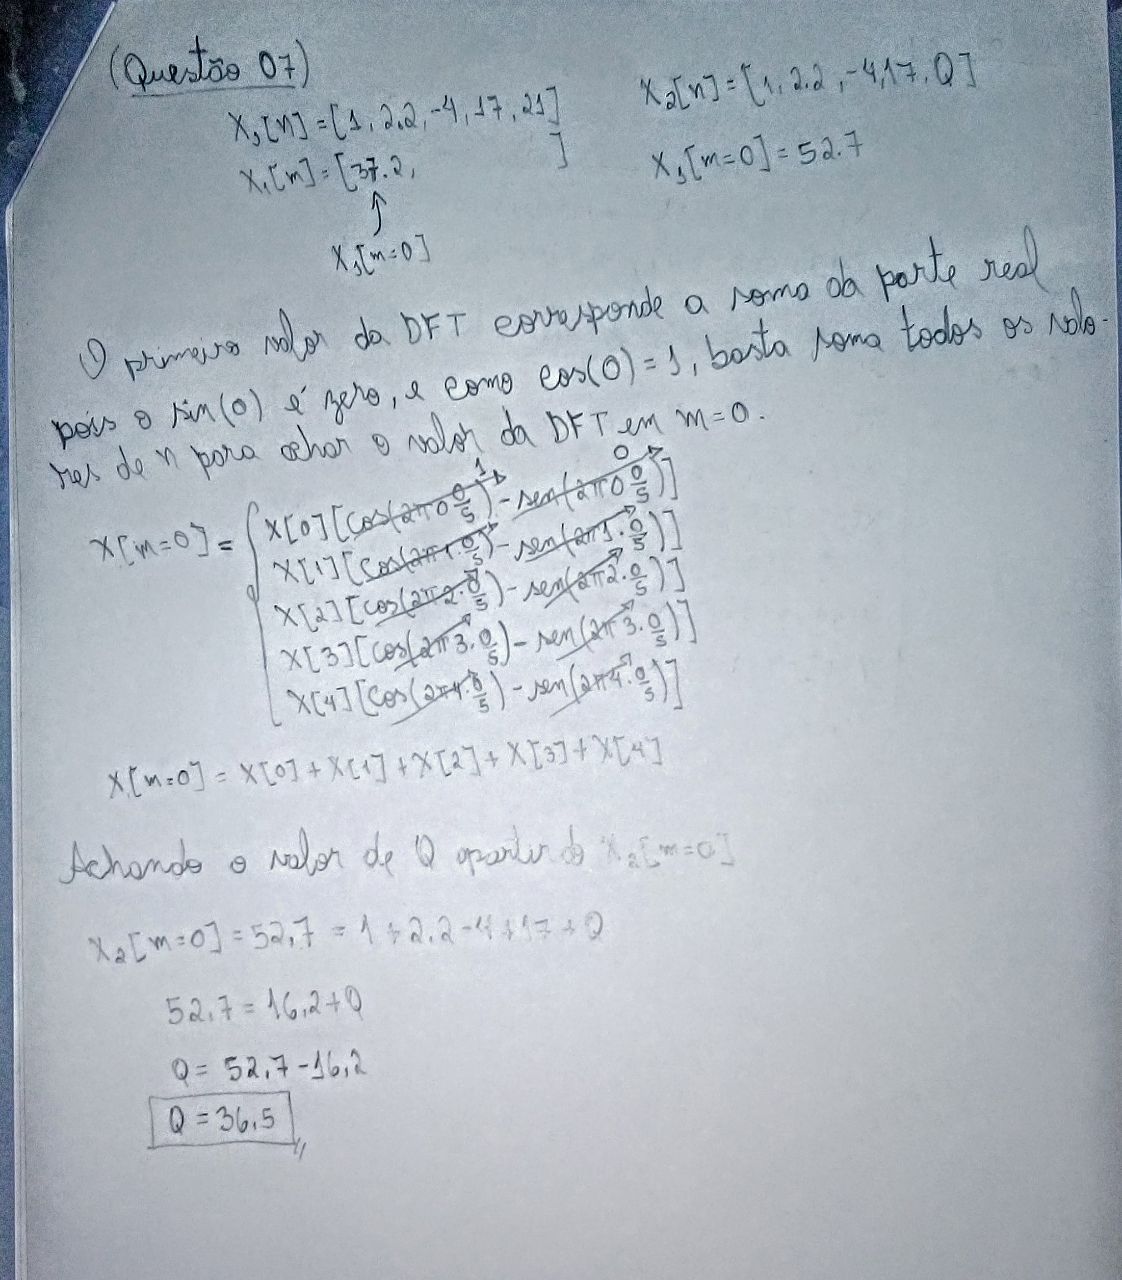 (Questão 07)
X₁[n]=[1, 2.2, -4, 17, 21]
X₂[n]=[1, 2.2, -4, 17, Q]
X₁[m]=[37.2, ]
X₁[m=0]=52.7
↑
X₁[m=0]
O primeiro valor da DFT corresponde a soma da parte real
pois o sin(0) é zero, e como cos(0)=1, basta soma todos os valo-
res de n para achar o valor da DFT em m=0.
X[m=0]= { X[0][cos(2π0 0/5) - sen(2π0 0/5)] 1 0
X[1][cos(2π1.0/5) - sen(2π1.0/5)]
X[2][cos(2π2.0/5) - sen(2π2.0/5)]
X[3][cos(2π3.0/5) - sen(2π3.0/5)]
X[4][cos(2π4.0/5) - sen(2π4.0/5)]
X[m=0] = X[0] + X[1] + X[2] + X[3] + X[4]
Achando o valor de Q apartir do X₂[m=0]
X₂[m=0] = 52,7 = 1 + 2,2 - 4 + 17 + Q
52,7 = 16,2 + Q
Q = 52,7 - 16,2
Q = 36,5